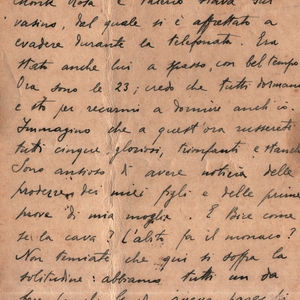 Rosa e Valerio stava sul
vasino, dal quale si è affrettato a
evadere durante la telefonata. Era
stato anche lui a spasso, con bel tempo.
Ora sono le 23; credo che tutti dormano
e sto per recarmi a dormire anch'io.
Immagino che a quest'ora russerete
tutti cinque, gloriosi, trionfanti e stanchi.
Sono ansioso di avere notizia delle
prodezze dei miei figli e delle prime
prove di mia moglie. E Bice come
se la cava? L'abito fa il monaco?
Non temiate che qui si soffra la
solitudine: abbiamo tutti un da